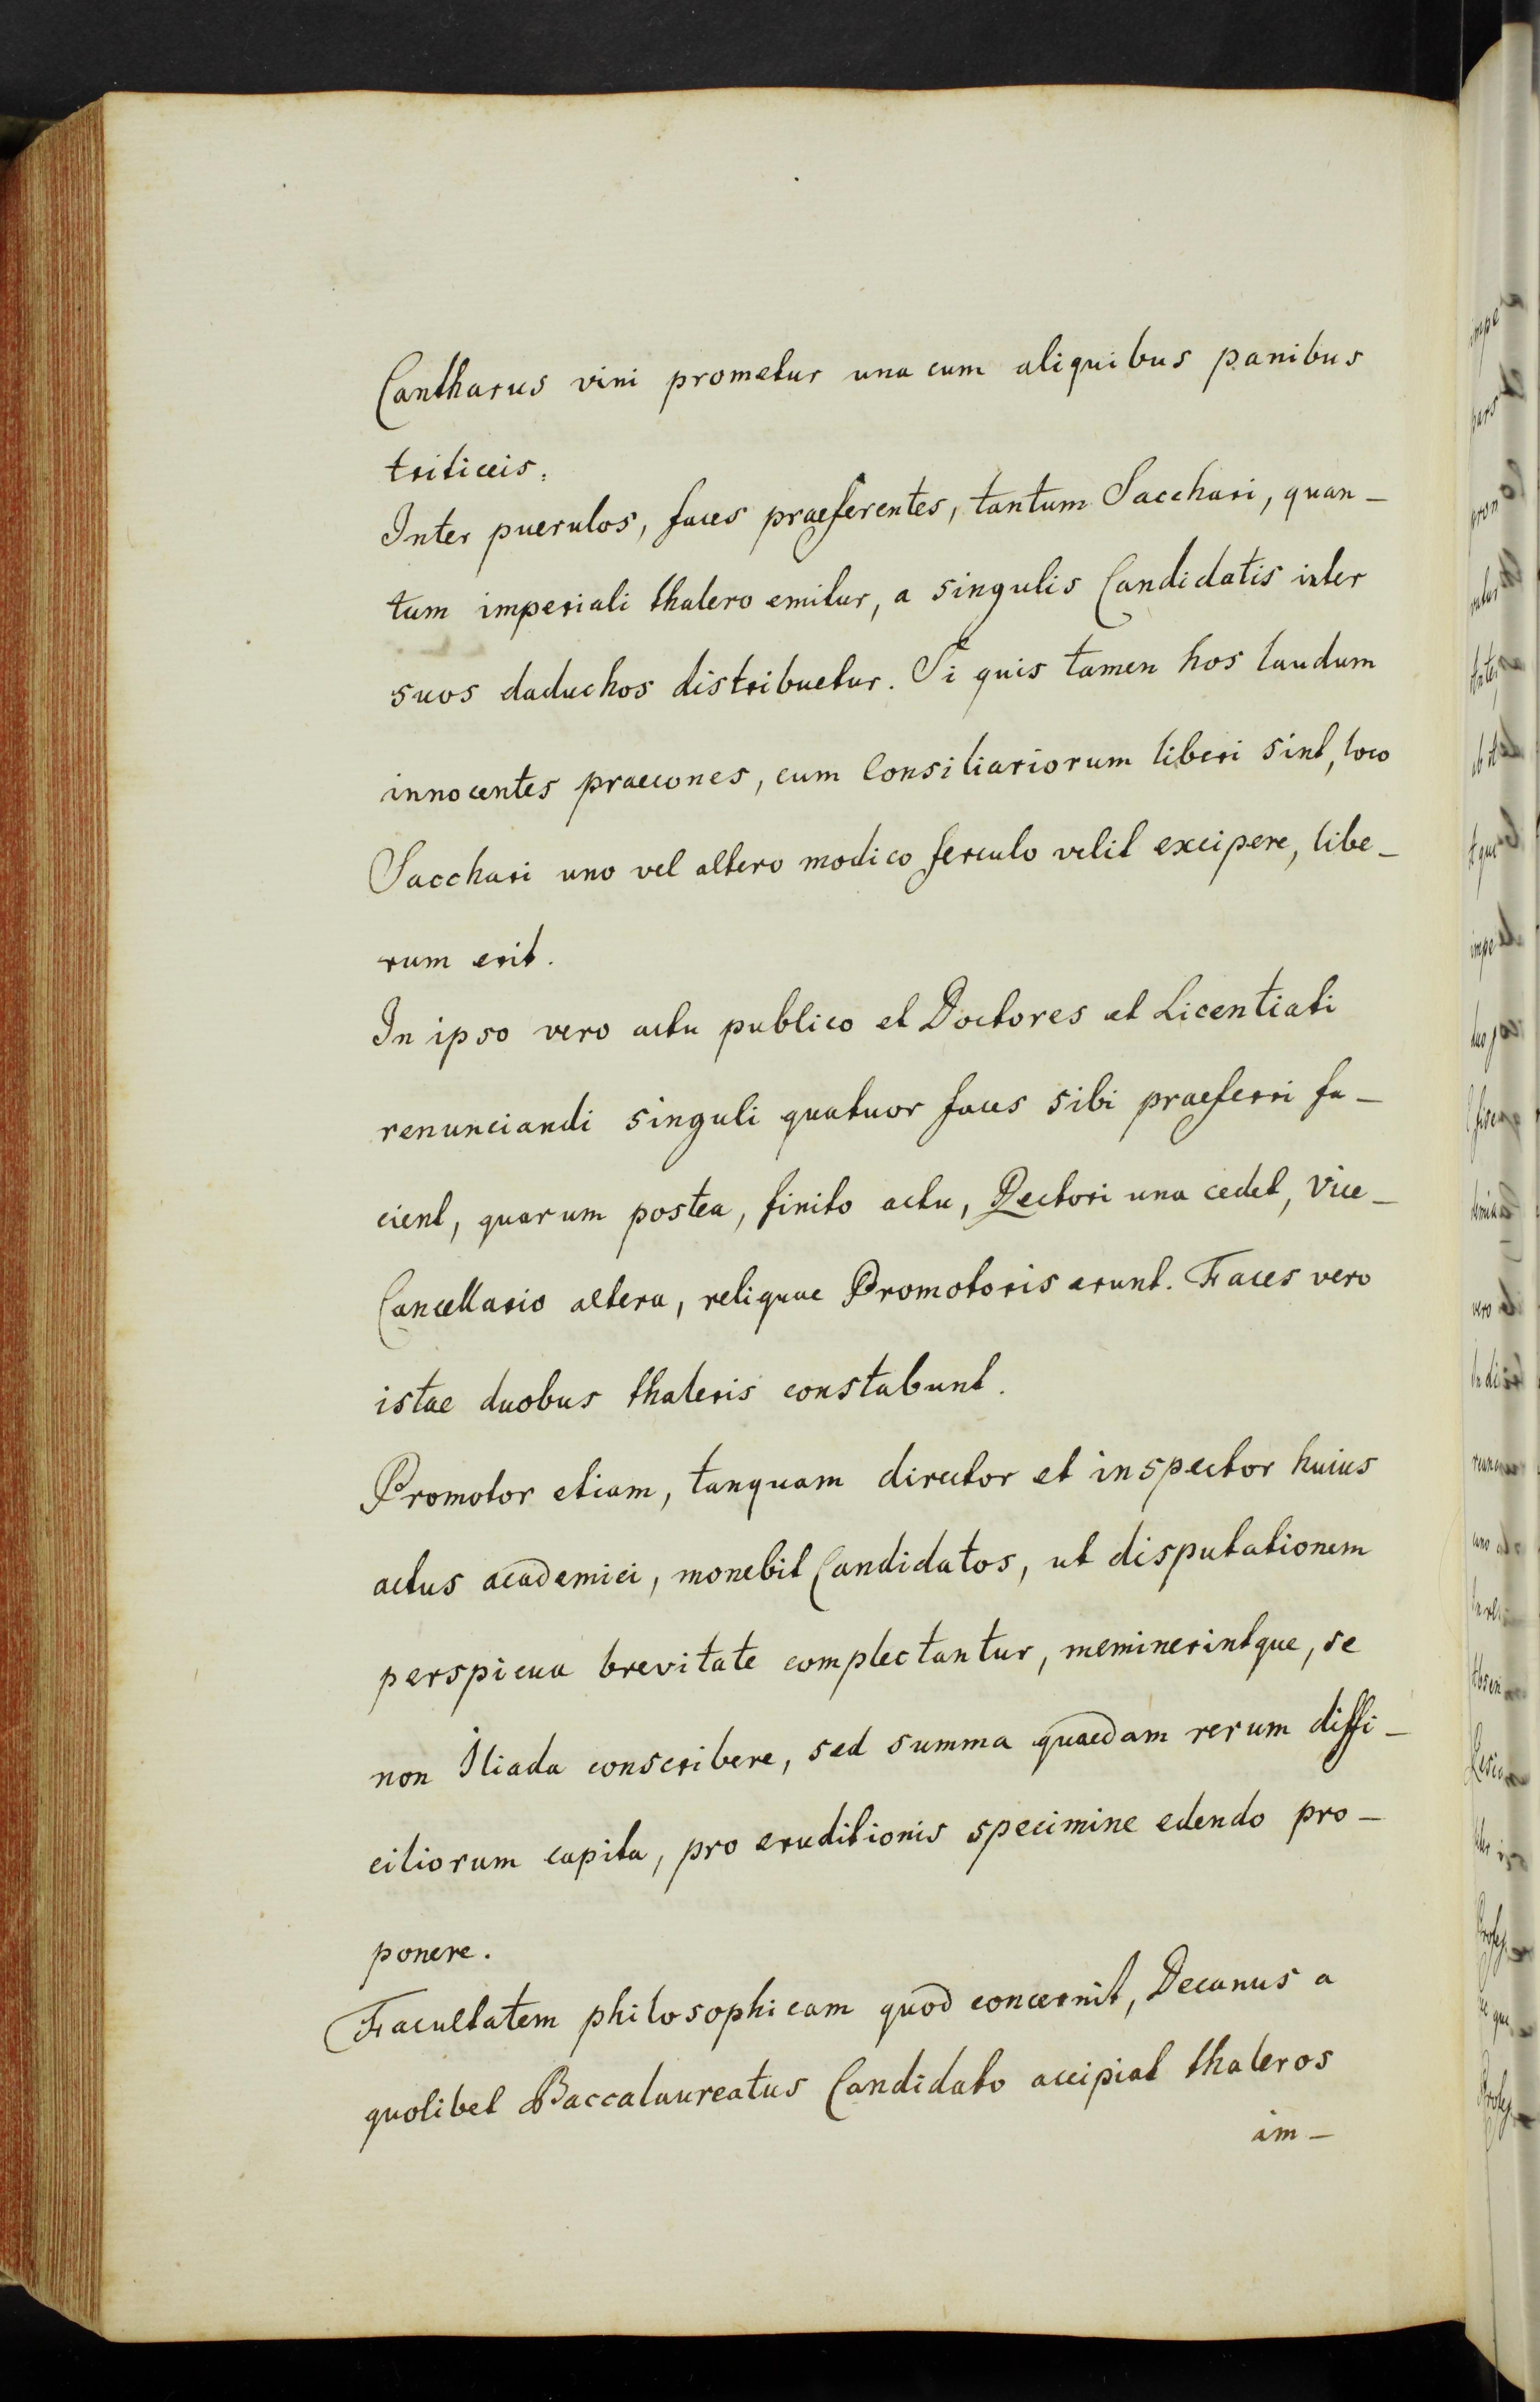 Cantharus vini prometur una cum aliquibus panibus
triticeis.
Inter puerulos, faces praeferentes, tantum Sacchari, quan-
tum imperiali thalero emitur, a singulis Candidatis inter
suos daduchos distribuetur. Si quis tamen hos laudum
innocentes praecones, cum Consiliariorum liberi sint, loco
Sacchari uno vel altero modico ferculo velit excipere, libe-
rum erit.
In ipso vero actu publico et Doctores et Licentiati
renunciandi singuli quatuor faces sibi praeferri fa-
cient, quarum postea, finito actu, Rectori una cedet, Vice-
Cancellario altera, reliquae Promotoris erunt. Faces vero
istae duobus thaleris constabunt.
Promotor etiam, tanquam director et inspector huius
actus academici, monebit Candidatos, ut disputationem
perspicua brevitate complectantur, meminerintque, se
non Iliada conscribere, sed summa quaedam rerum diffi-
ciliorum capita, pro eruditionis specimine edendo pro-
ponere.
Facultatem philosophicam quod concernit, Decanus a
quolibet Baccalaureatus Candidato accipiat thaleros
im-